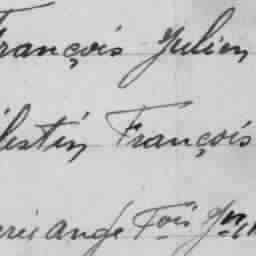 François Julien
lestin François
rie ange Fois Jn